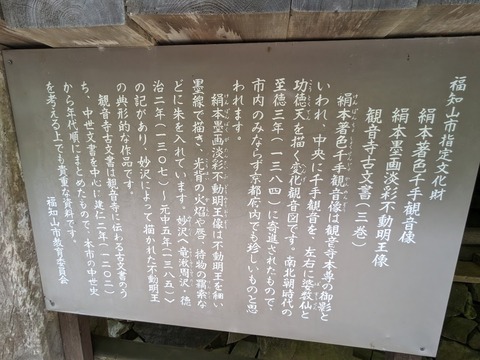 福知山市指定文化財
絹本著色千手観音像
絹本墨画淡彩不動明王像
観音寺古文書(三巻)
絹本著色千手観音像は観音寺本尊の御影と
いわれ、中央に千手観音を、左右に婆薮仙と
功徳天を描く変化観音図です。南北朝時代の
至徳三年(一三八四)に寄進されたもので、
市内のみならず京都府内でも珍しいものと思
われます。
絹本墨画淡彩不動明王像は不動明王を細い
墨線で描き、光背の火焔や唇、持物の羂索な
どに朱を入れています。妙沢(竜湫周沢、徳
治二年(一三〇七)~元中五年(一三八八)
の記があり、妙沢によって描かれた不動明王
の典形的な作品です。
観音寺古文書は観音寺に伝わる古文書のう
ち、中世文書を中心に建仁二年(一二〇二)
から年代順にまとめたもので、本市の中世史
を考える上でも貴重な資料です。
福知山市教育委員会